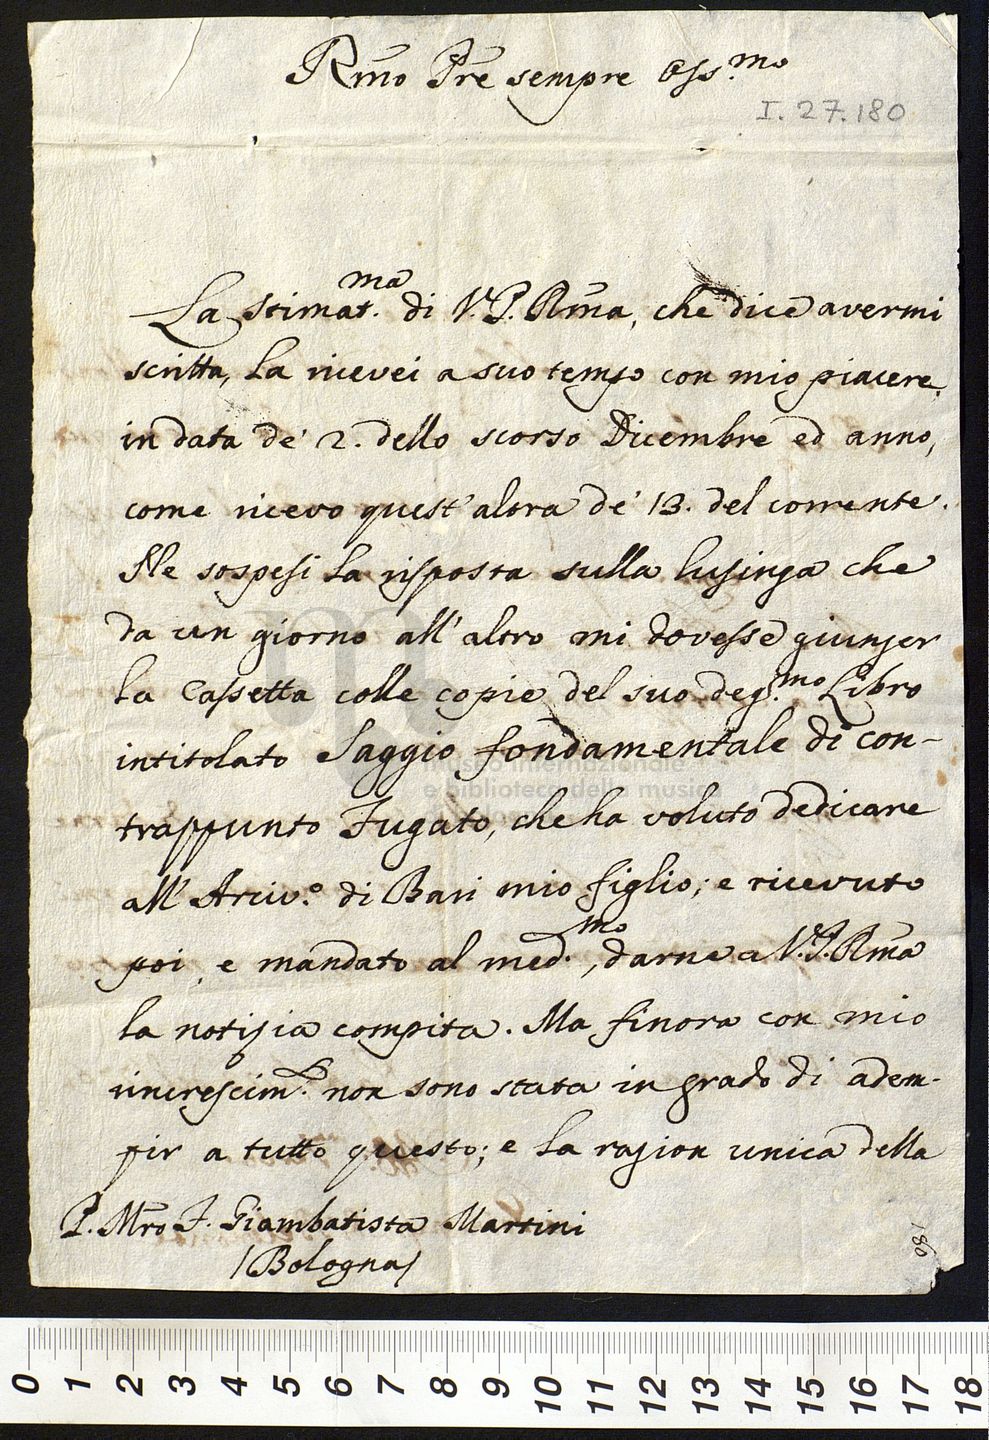 Rmo Pre sempre Oss.mo
I. 27. 180
La stimat.ma di V. P. Rma, che dice avermi
scritta, la ricevei a suo tempo con mio piacere
in data de' 2. dello scorso Dicembre ed anno,
come ricevo quest'altra de' 13. del corrente.
Ne sospesi la risposta sulla lusinga che
da un giorno all'altro mi dovesse giunger
la Cassetta colle copie del suo deg.mo Libro
intitolato Saggio fondamentale di con-
trappunto Fugato, che ha voluto dedicare
all' Arciv.o di Bari mio figlio; e ricevuto
poi, e mandato al med.mo, darne a V. P. Rma
la notizia compita. Ma finora con mio
rincrescim.o non sono stata in grado di adem-
pir a tutto questo; e la ragion unica della
P. Mro F. Giambatista Martini
/Bologna/
180
museo internazionale
e biblioteca della musica
0 1 2 3 4 5 6 7 8 9 10 11 12 13 14 15 16 17 18